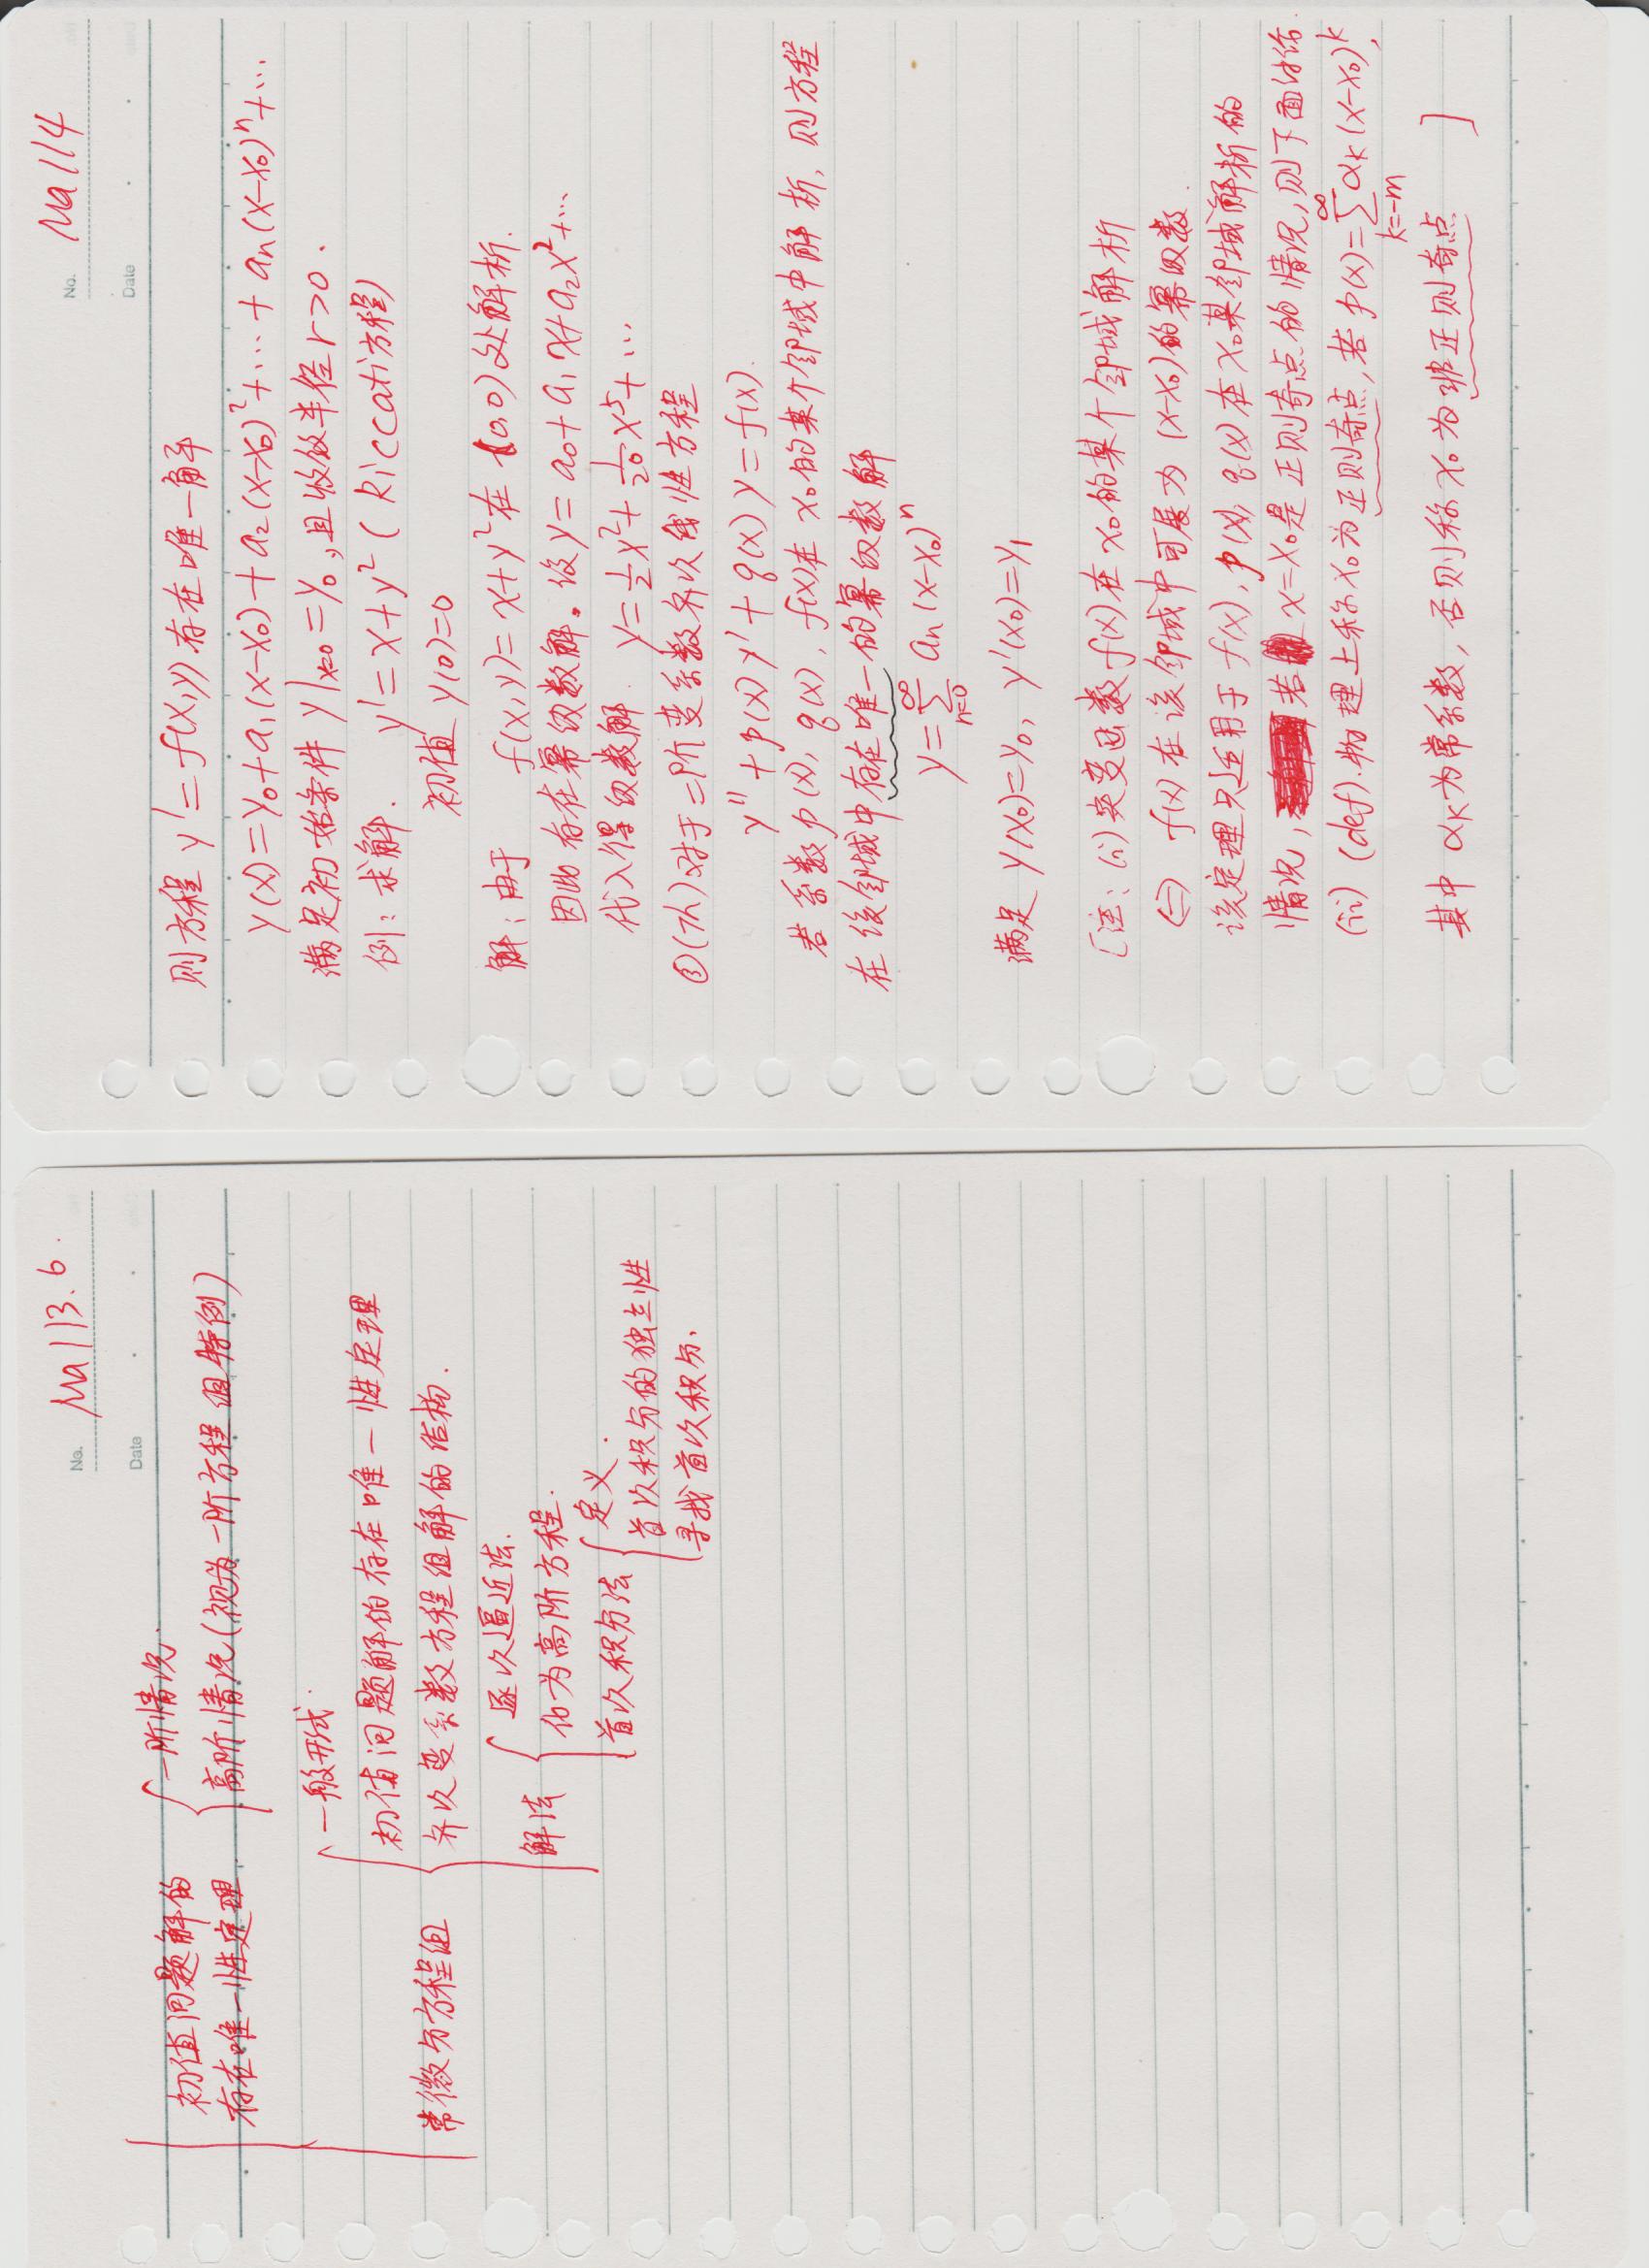 No. Ma113.6.
Date
初值问题解的
存在唯一性定理
一阶情况.
高阶情况(视为一阶方程组特例)
常微分方程组
一般形式.
初值问题解的存在唯一性定理
齐次变系数方程组解的结构.
解法
逐次逼近法.
化为高阶方程.
首次积分法
定义.
首次积分的独立性
寻找首次积分.
No. Ma114
Date
则方程 y'=f(x,y)存在唯一解
y(x)=y₀+a₁(x-x₀)+a₂(x-x₀)²+⋯+aₙ(x-x₀)ⁿ+⋯
满足初始条件 y|ₓ₌₀=y₀,且收敛半径r>0.
例:求解. y'=x+y²(Riccati方程)
初值 y(0)=0
解:由于 f(x,y)=x+y²在(0,0)处解析.
因此存在幂级数解。设y=a₀+a₁x+a₂x²+⋯
代入得级数解. y=1/2x²+1/20x⁵+⋯
③(Th)对于二阶变系数齐次线性方程
y''+p(x)y'+q(x)y=f(x).
若系数p(x),q(x),f(x)在x₀的某个邻域中解析,则方程
在该邻域中存在唯一的幂级数解
y=∑ₙ₌₀^∞ aₙ(x-x₀)ⁿ
满足 y(x₀)=y₀, y'(x₀)=y₁
[注:(i)实变函数f(x)在x₀的某个邻域解析
⇔ f(x)在该邻域中可展为(x-x₀)的幂级数.
该定理只适用于f(x),p(x),q(x)在x₀某邻域解析的
情况,若x=x₀是正则奇点的情况,则下面讨论.
(ii)(def).物理上称x₀为正则奇点,若p(x)=∑ₖ₌₋ₘ^∞ αₖ(x-x₀)ᵏ,
其中αₖ为常系数,否则称x₀为非正则奇点 ]